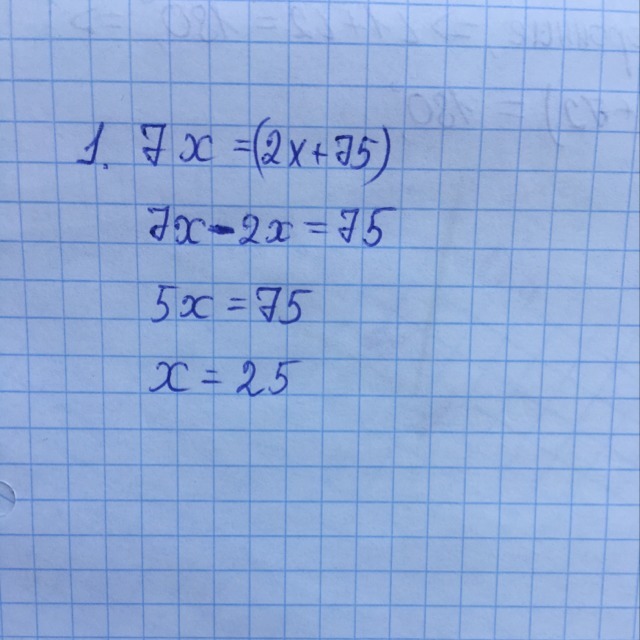 1. 7x = (2x+75)
7x - 2x = 75
5x = 75
x = 25